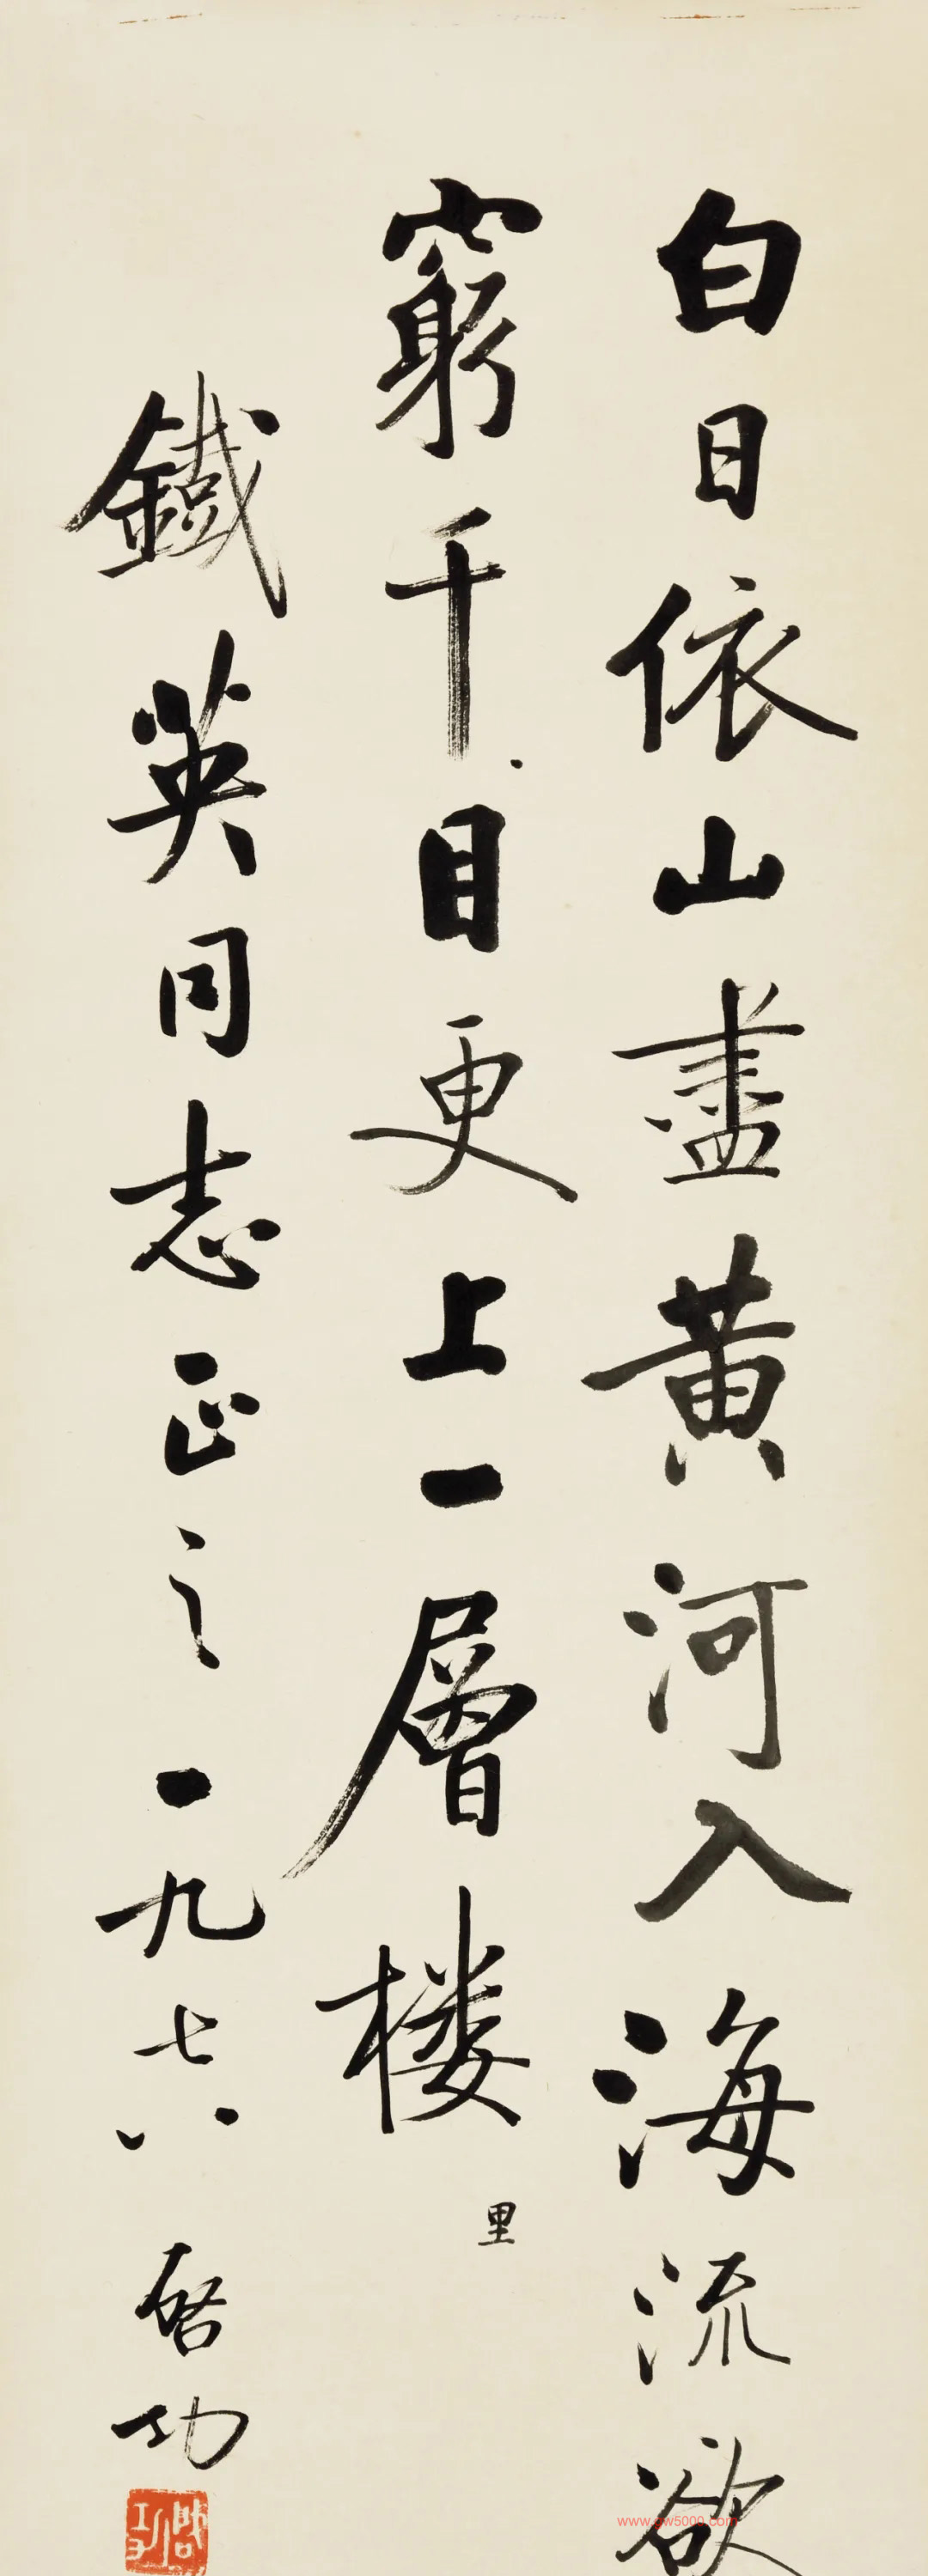 白日依山盡黄河入海流欲
窮千目更上一層楼
里
鐵英同志正之一九七八 啓功
啟功
www.gw5000.com